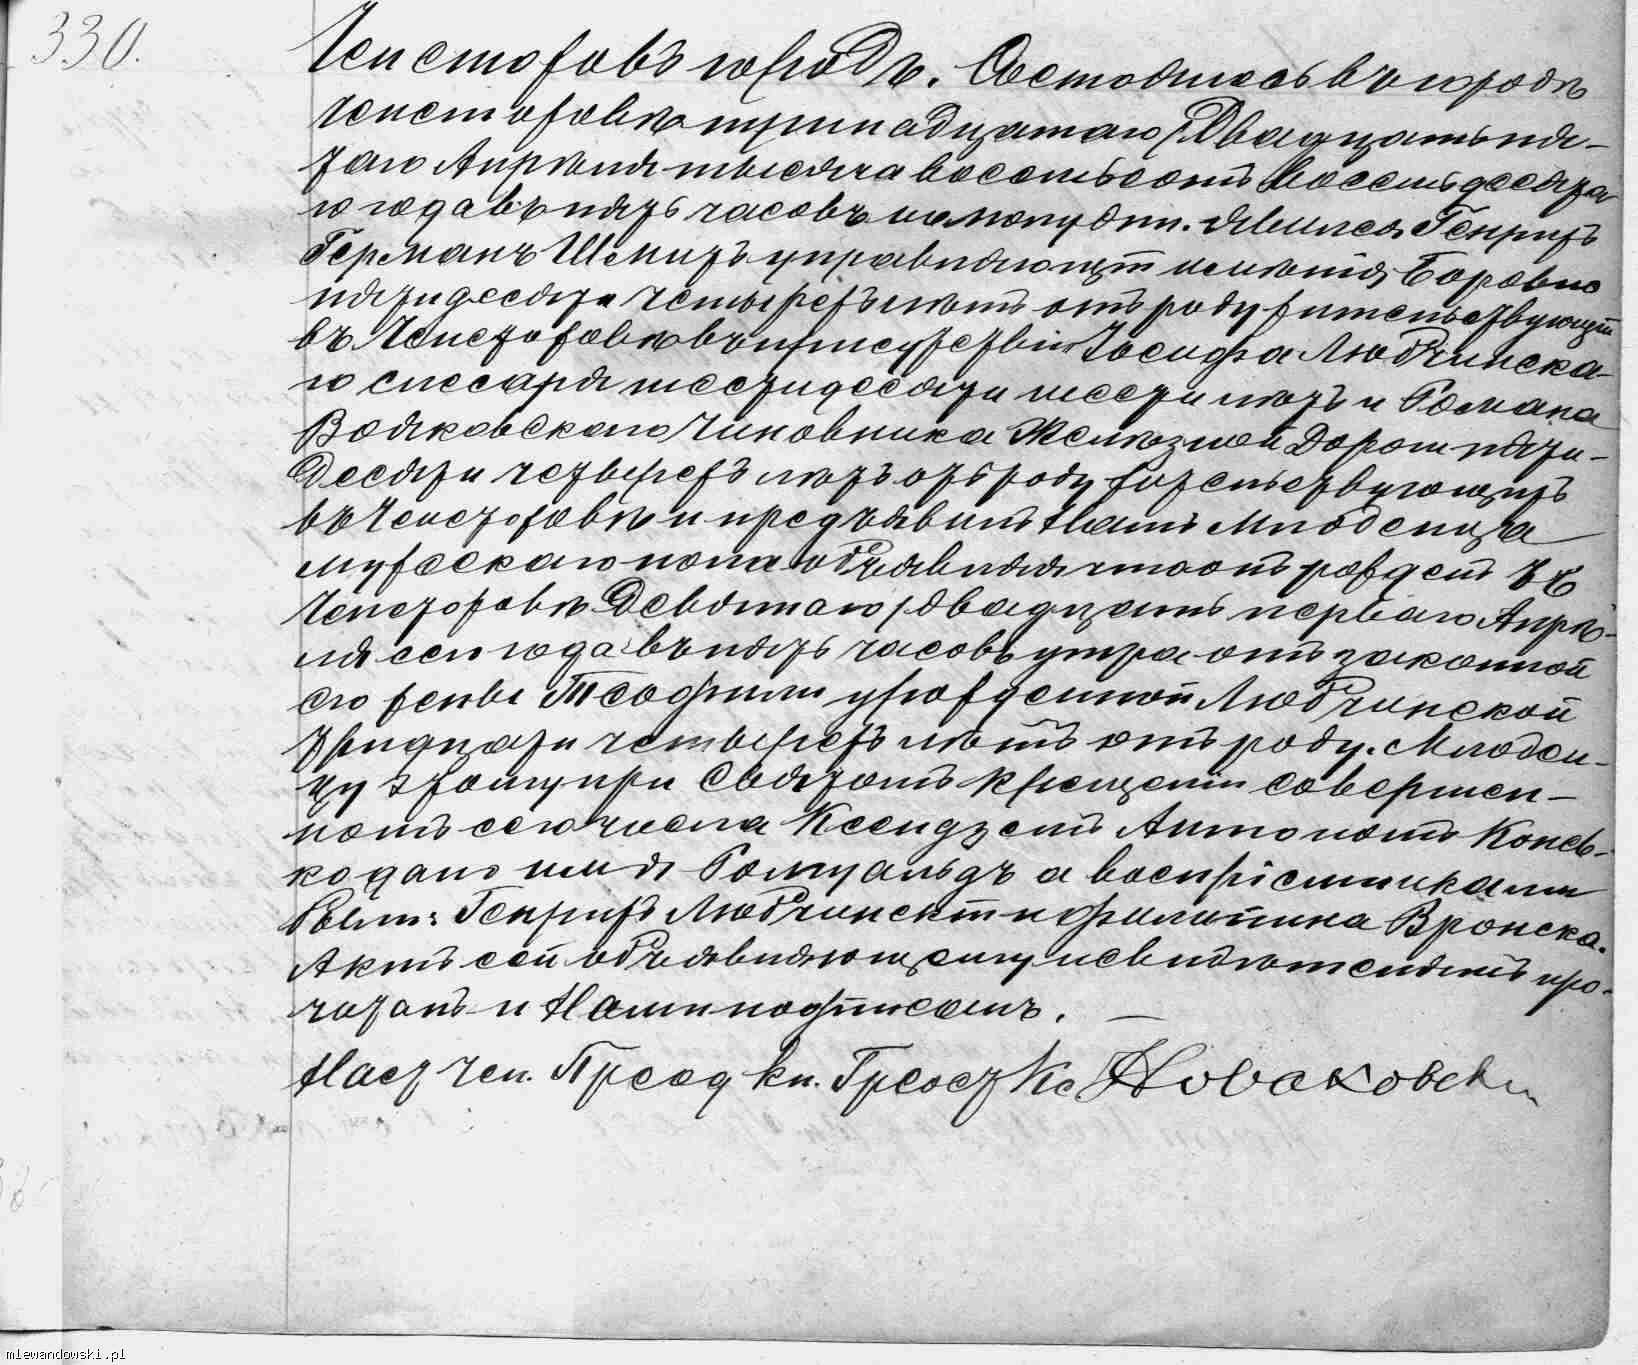 330.
Ченстоховъ городъ. Состоялось въ городѣ
Ченстоховѣ тринадцатаго /двадцать пя-
таго Апрѣля тысяча восемьсотъ восемьдесята
го года въ пять часовъ по полудни. Явился Генрихъ
Германъ Шмихъ управляющій имѣнія Боровно
пятидесяти четырехъ лѣтъ отъ роду жительствующій
въ Ченстоховѣ въ присутствіи Іосифа Любчинска-
го слесаря шестидесяти шести лѣтъ и Романа
Войковскаго чиновника Желѣзной Дороги пяти-
десяти четверехъ лѣтъ отъ роду жительствующихъ
въ Ченстоховѣ и предъявилъ Намъ младенца
мужескаго пола объявляя что онъ рожденъ въ
Ченстоховѣ девятаго /двадцать перваго Апрѣ-
ля сего года въ пять часовъ утра отъ законной
его жены Теофили урожденной Любчинской
тридцати четверехъ лѣтъ отъ роду. Младен-
цу этому при Святомъ Крещеніи совершен-
номъ сего числа Ксендземъ Антономъ Конев-
ко дано имя Ромуальдъ а воспріемниками
были: Генрихъ Любчинскій и Филипина Вронска.
Актъ сей объявляющему и свидѣтелямъ про-
читанъ и Нами подписанъ. —
Наст Чен. Преод Кн. Греост Кс Новаковски
mlewandowski.pl